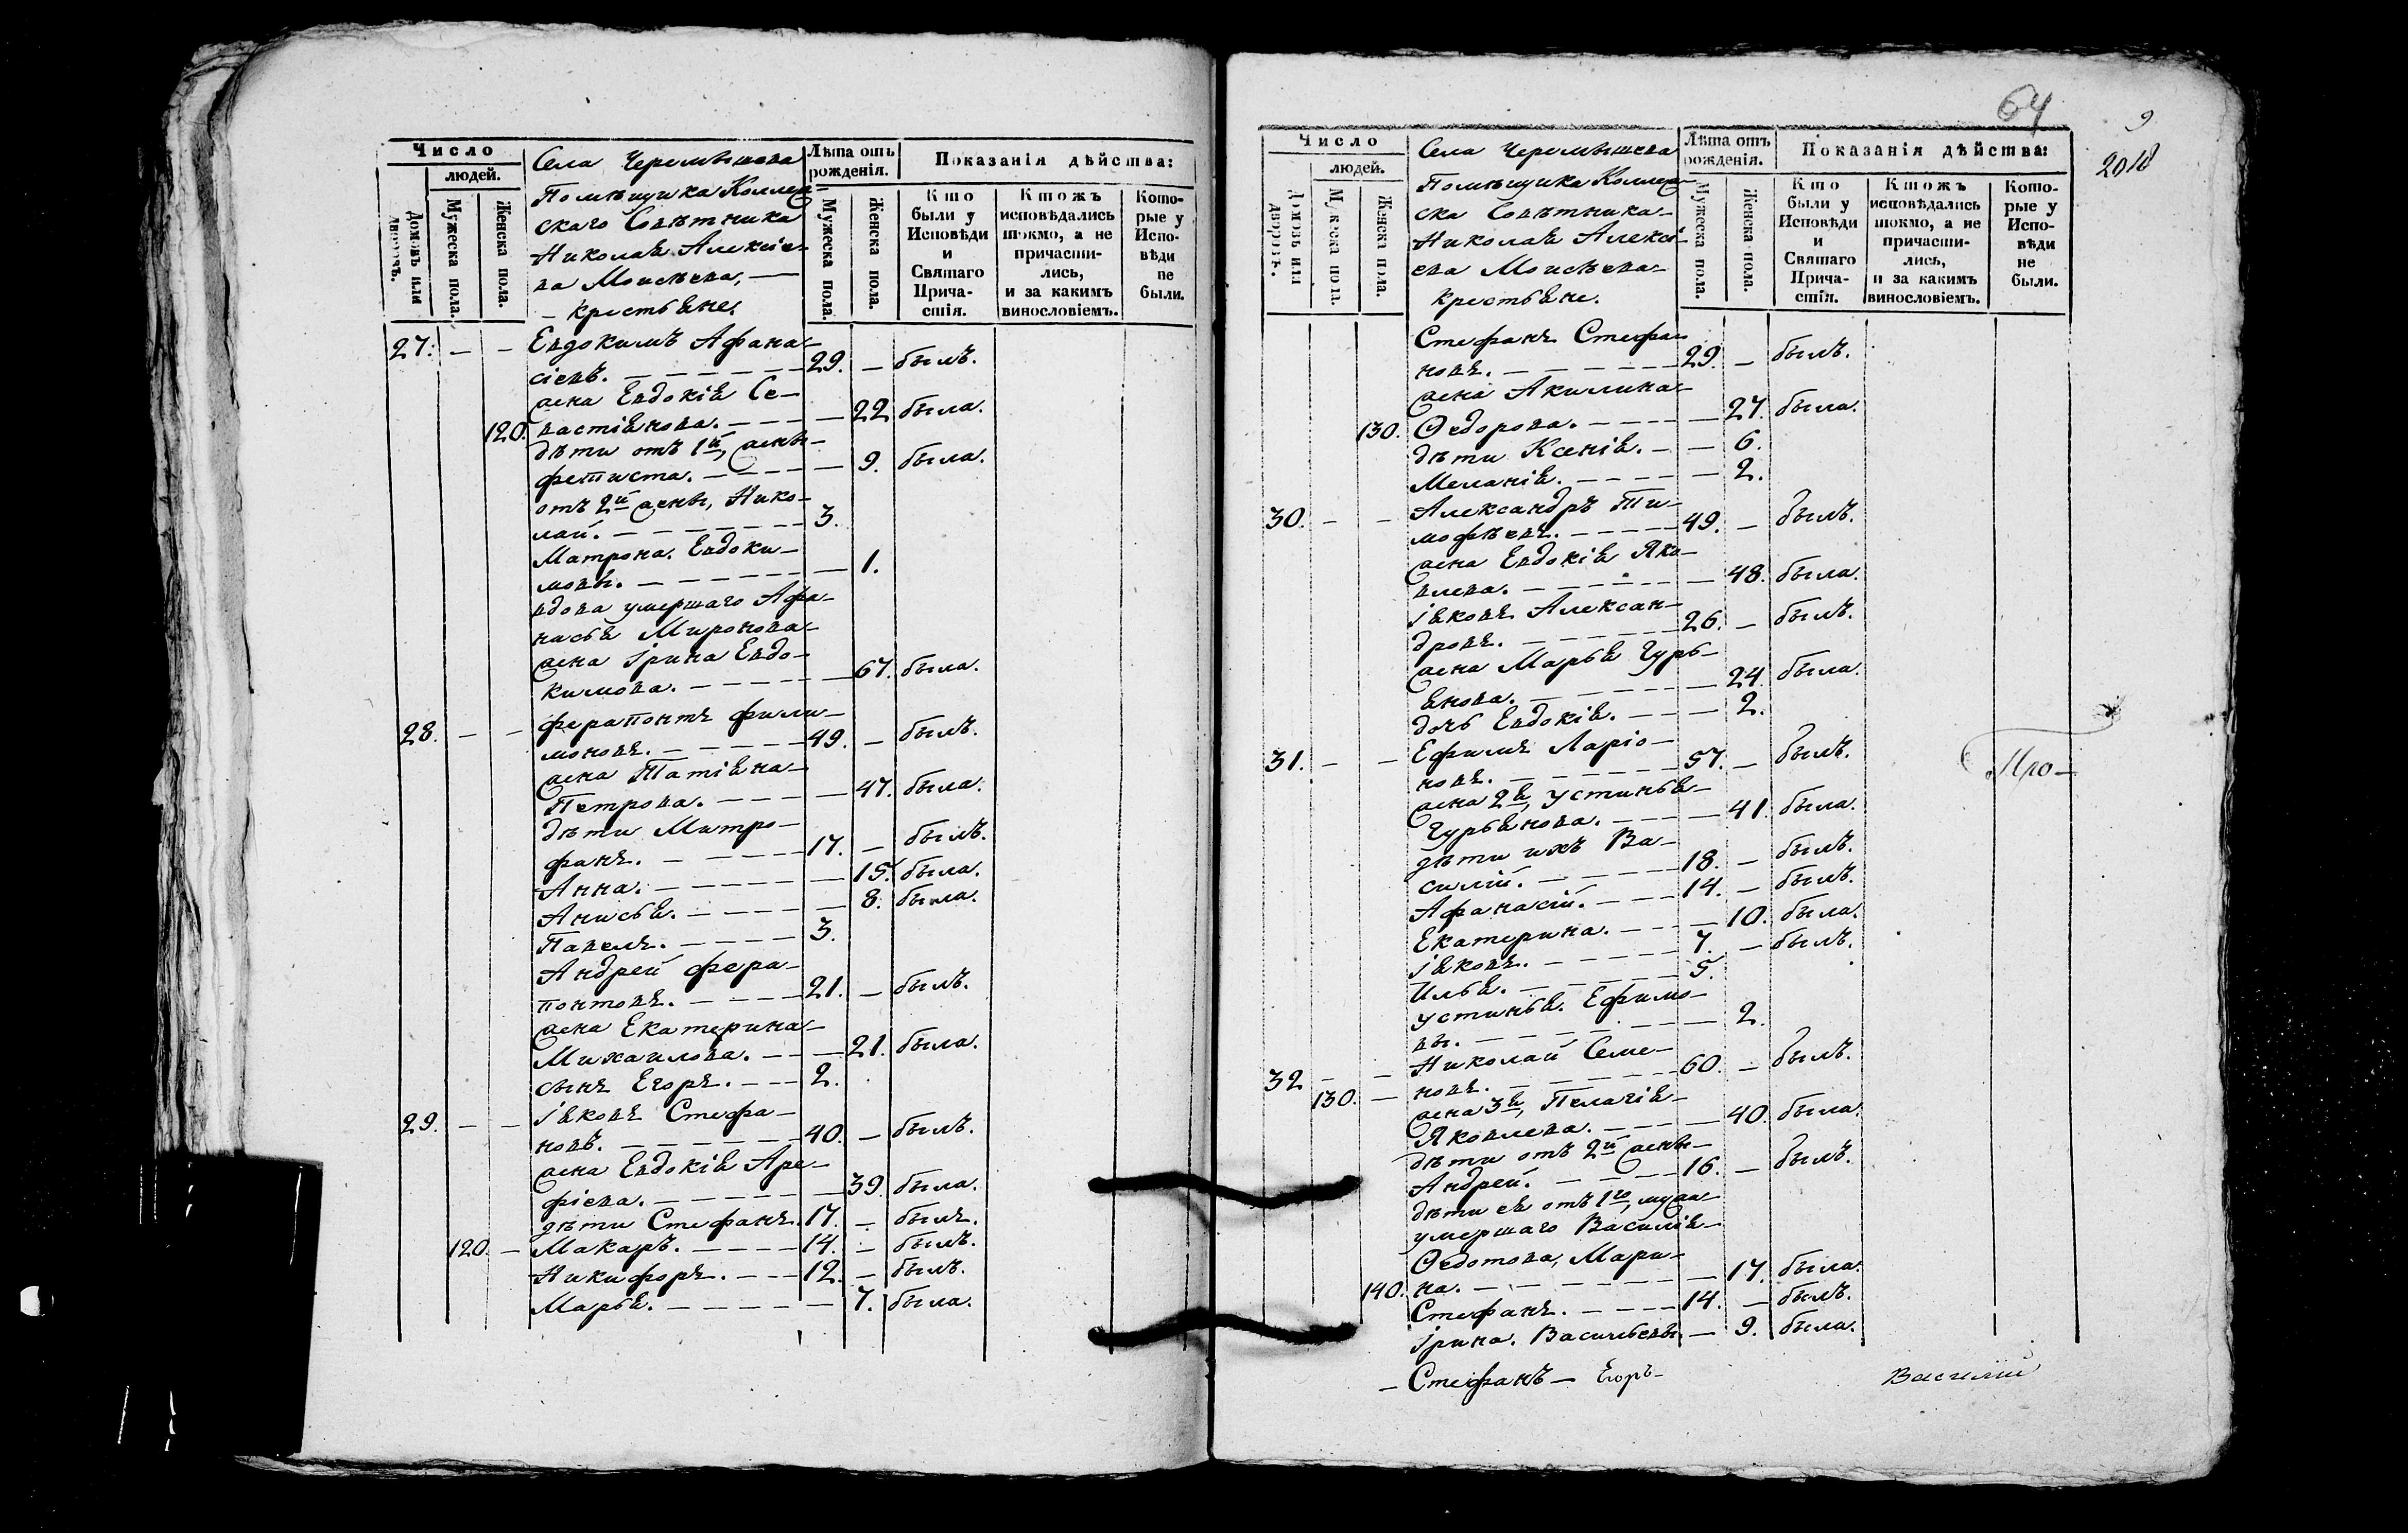 Число
людей.
Домовъ или дворовъ.
Мужеска пола.
Женска пола.
Села Черемѣшева
Помѣщика Коллеж-
скаго Совѣтника
Николая Алексѣе-
ва Моисѣева,
крестьяне.
Лѣта отъ рожденія.
Мужеска пола.
Женска пола.
Показанія дѣйства:
Кто были у Исповѣди и Святаго Причастія.
Ктожъ исповѣдались токмо, а не причастились, и за какимъ винословіемъ.
Которые у Исповѣди не были.
27. – – Евдокимъ Афана-
сіевъ. 29. – былъ.
жена Евдокія Се-
120. вастіянова. – 22 была.
дѣти отъ 1й, жены
Фетиста. – 9. была.
отъ 2й жены, Нико-
лай. 3.
Матрона. Евдоки-
мовы. – 1.
вдова умершаго Афа-
насья Миронова
жена Ірина Евдо-
кимова. – 67. была.
28. – – Ферапонтъ Фили-
моновъ. 49. – былъ.
жена Татіяна
Петрова. – 47. была.
дѣти Митро-
фанъ. 17. – былъ.
Анна. – 15. была.
Анисья. – 8. была.
Павелъ. 3.
Андрей Фера-
понтовъ. 21. – былъ.
жена Екатерина
Михаилова. – 21. была.
сынъ Егоръ. 2.
29. – – Іяковъ Стефа-
новъ. 40. – былъ.
жена Евдокія Аре-
фіева. – 39. была.
дѣти Стефанъ. 17. – былъ.
120. – Макаръ. 14. – былъ.
Никифоръ. 12. – былъ.
Марья. – 7. была.
64
9
2018
Число
людей.
Домовъ или дворовъ.
Мужеска пола.
Женска пола.
Села Черемѣшева
Помѣщика Коллеж-
ска Совѣтника
Николая Алексѣ-
ева Моисѣева
крестьяне.
Лѣта отъ рожденія.
Мужеска пола.
Женска пола.
Показанія дѣйства:
Кто были у Исповѣди и Святаго Причастія.
Ктожъ исповѣдались токмо, а не причастились, и за какимъ винословіемъ.
Которые у Исповѣди не были.
Стефанъ Стефа-
новъ. 29. – былъ.
жена Акилина
130. Ѳедорова. – 27. была.
дѣти Ксенія. – 6.
Меланія. – 2.
30. – – Александръ Ти-
мофѣевъ. 49. – былъ.
жена Евдокія Яко-
влева. – 48. была.
Іяковъ Алексан-
дровъ. 26. – былъ.
жена Марья Гурь-
янова. – 24. была.
дочь Евдокія. – 2.
31. – – Ефимъ Ларіо-
новъ. 57. – былъ.
жена 2я, Устинья
Гурьянова. – 41. была.
дѣти ихъ Ва-
силій. 18. – былъ.
Афанасій. 14. – былъ.
Екатерина. – 10. была.
Іяковъ. 7. – былъ.
Илья. 5.
Устинья. Ефимо-
вы. – 2.
32 – – Николай Семе-
130. – новъ. 60. – былъ.
жена 3я, Пелагія
Яковлева. – 40. была.
дѣти отъ 2й жены
Андрей. 16. – былъ.
дѣти ея отъ 1го, мужа
умершаго Василія
Ѳедотова, Мари-
140. на. – 17. была.
Стефанъ. 14. – былъ.
Ірина. Васильевы. – 9. была.
Про-
– Стефанъ – Егоръ –
Василій